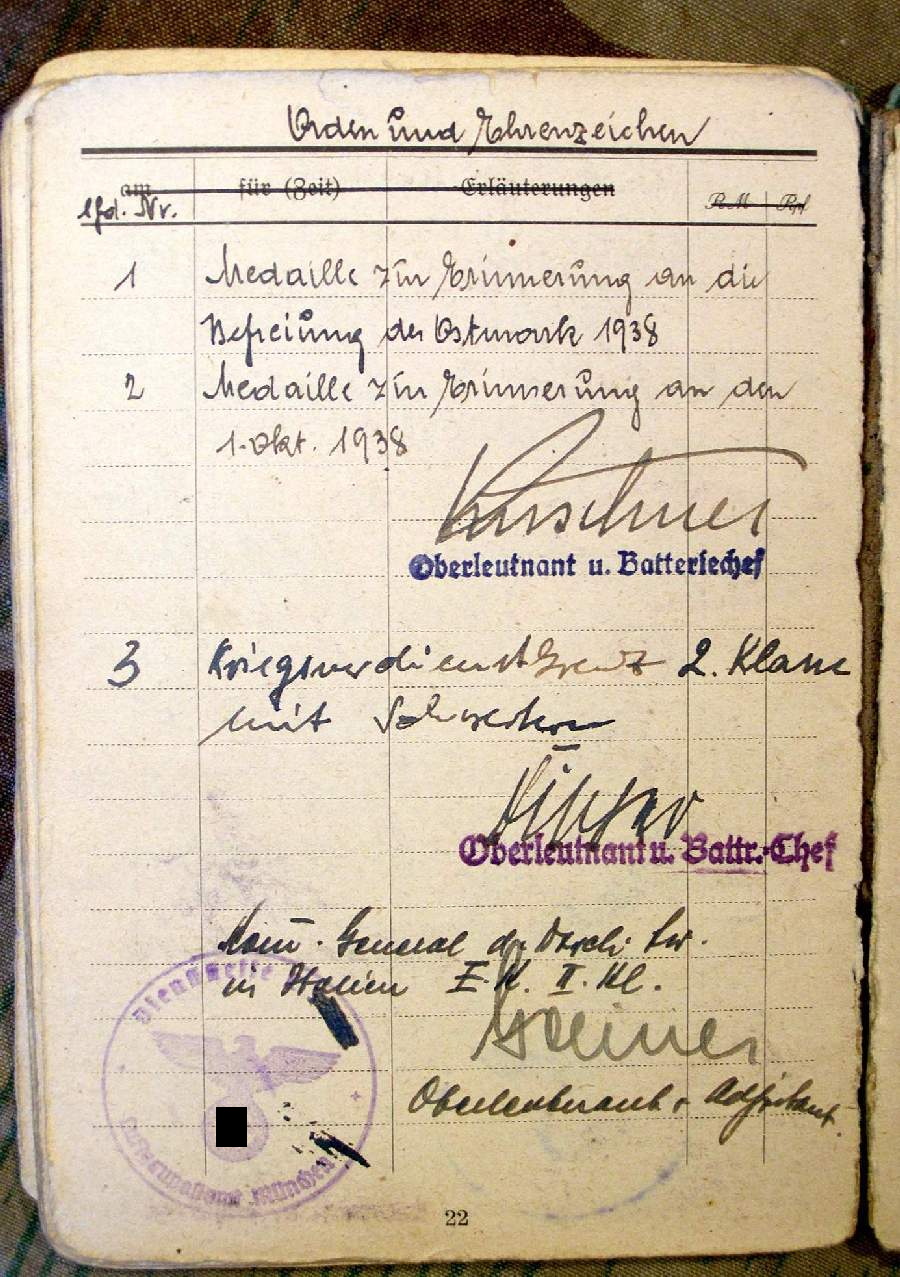 Orden und Ehrenzeichen
am für (Zeit) Erläuterungen RM Rpf
lfd. Nr.
1 Medaille zur Erinnerung an die
Befreiung der Ostmark 1938
2 Medaille zur Erinnerung an den
1. Okt. 1938
Oberleutnant u. Batteriechef
3 Kriegsverdienstkreuz 2. Klasse
mit Schwertern
Oberleutnant u. Battr.-Chef
Kom. General der Dtsch. Lw.
in Italien E.K. II. Kl.
Oberleutnant u. Adjutant.
Dienststelle
München
22